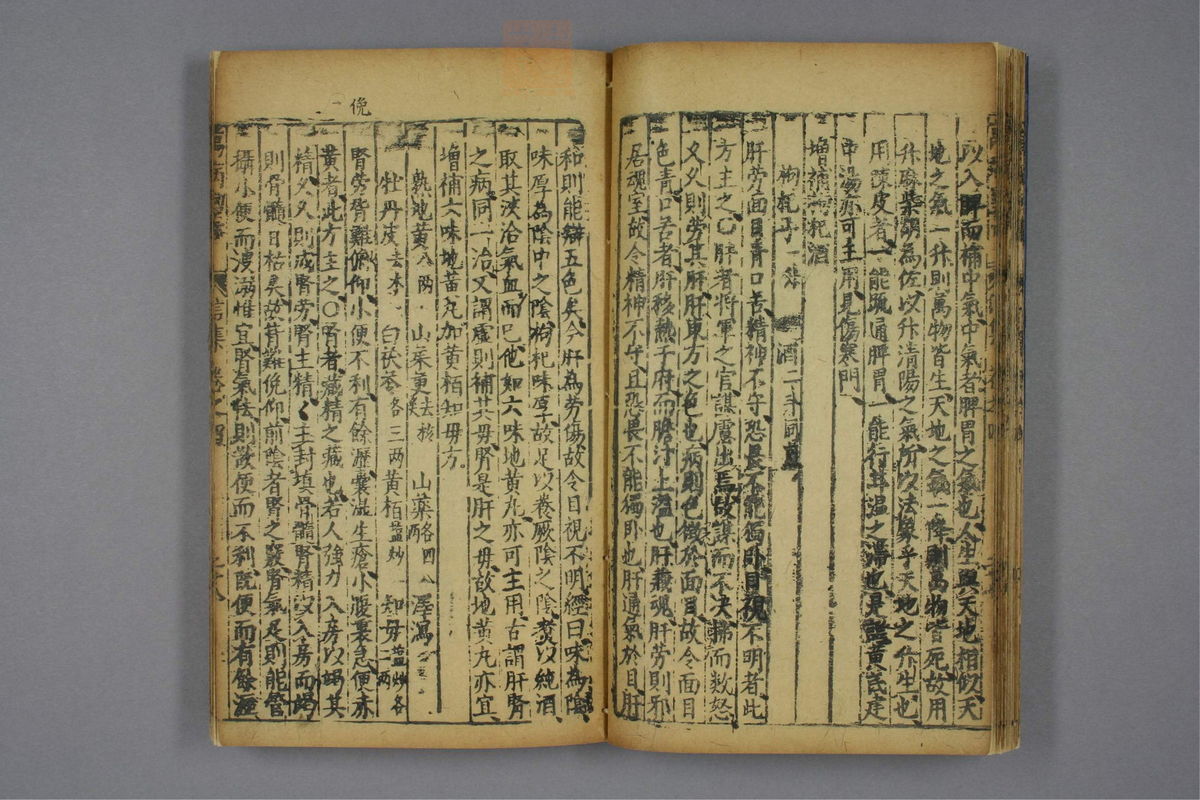 以入脾而補中氣中氣者脾胃之氣也人生與天地相似天
地之氣一升則萬物皆生天地之氣一降則萬物皆死故用
升麻柴胡為佐以升清陽之氣所以法象乎天地之升生也
用陳皮者一能疏通脾胃一能行甘溫之滯也是證黃芪建
中湯亦可主用見傷寒門
增補枸杞酒
枸杞子一 酒二
肝勞面目青口苦精神不守恐畏不能獨卧目視不明者此
方主之○肝者將軍之官謀慮出焉故謀而不决拂而數怒
久久則勞其肝肝東方之色也病則色徵於面目故令面目
色青口苦者肝移熱于府而膽汁上溢也肝藏魂肝勞則邪
居魂室故令精神不守且恐畏不能獨卧也肝通氣於目肝
俛
和則能辯五色矣今肝為勞傷故令目視不明經曰味為陰
味厚為陰中之陰枸杞味厚故足以養厥陰之陰煑以純酒
取其浹洽氣血而已他如六味地黃丸亦可主用古謂肝腎
之病同一治又謂虛則補其母腎是肝之母故地黃丸亦宜
增補六味地黃丸加黃栢知母方
熟地黃八两 山茱萸去核 山藥各四两 澤瀉
牡丹皮去木 白茯苓各三两 黃栢盐炒 知母盐炒各二两
腎勞背難俛仰小便不利有餘瀝囊濕生瘡小腹裏急便赤
黃者此方主之○腎者藏精之藏也若人強力入房以竭其
精久久則成腎勞腎主精精主封填骨髓腎精以入房而竭
則骨髓日枯矣故背難俛仰前陰者腎之竅腎氣足則能管
攝小便而溲滿惟宜腎氣怯則欲便而不利既便而有餘瀝